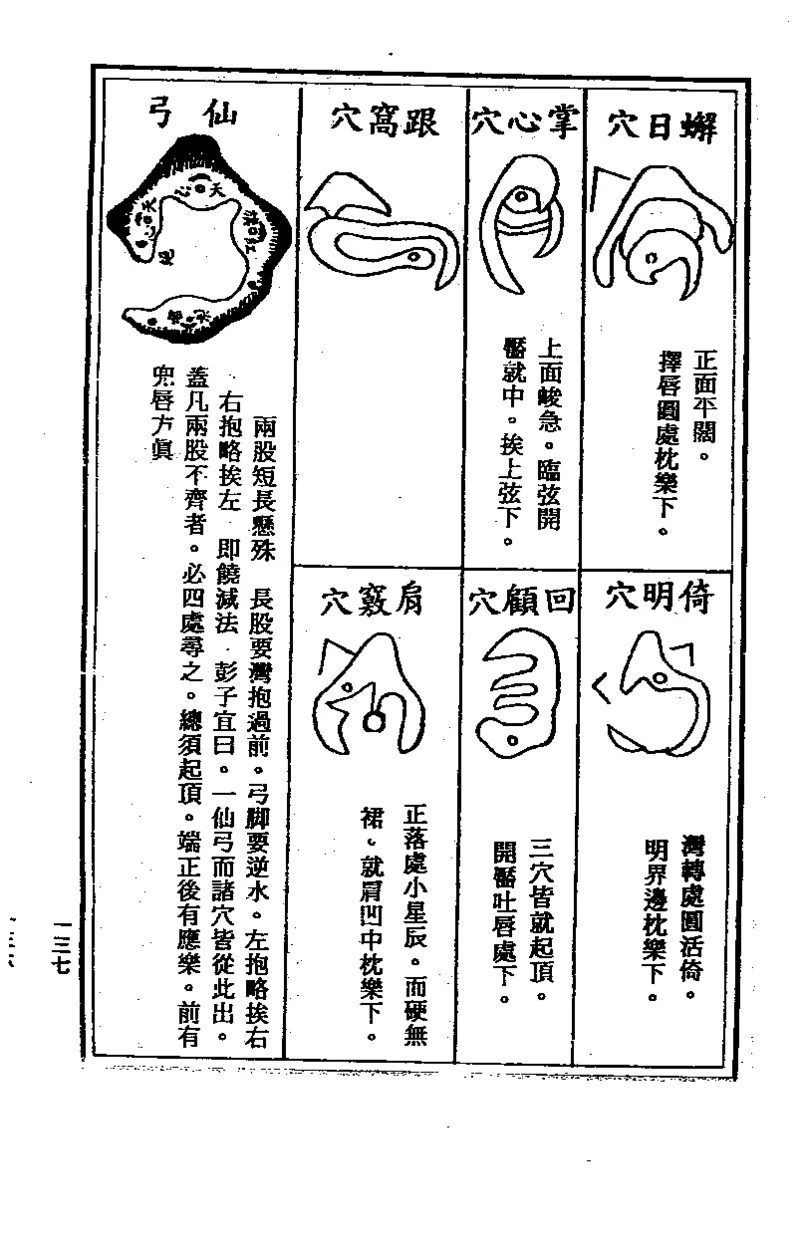 蠏日穴
正面平闊。
擇唇圓處枕樂下。
倚明穴
灣轉處圓活倚。
明界邊枕樂下。
掌心穴
上面峻急。臨弦開
靨就中。挨上弦下。
回顧穴
三穴皆就起頂。
開靨吐唇處下。
跟窩穴
肩竅穴
正落處小星辰。而硬無
裙。就肩凹中枕樂下。
仙弓
天心
兩股短長懸殊 長股要灣抱過前。弓脚要逆水。左抱略挨右
右抱略挨左 即饒減法.彭子宜曰。一仙弓而諸穴皆從此出。
蓋凡兩股不齊者。必四處尋之。總須起頂。端正後有應樂。前有
兜唇方眞
一三七